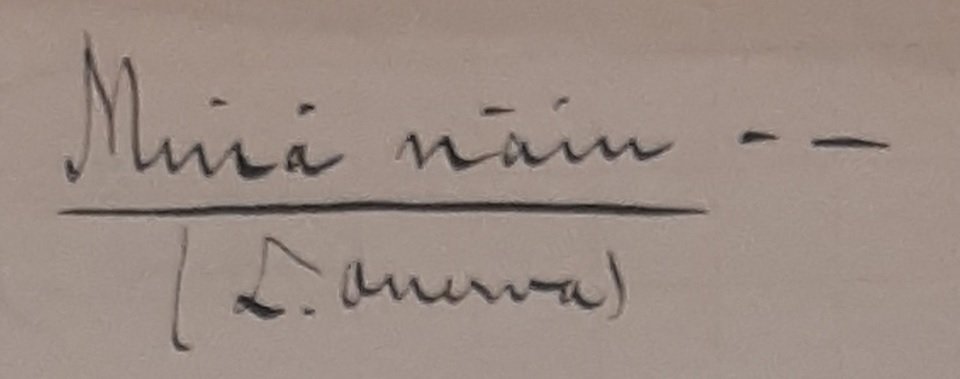 Minä näin - -
(L. Onerva)